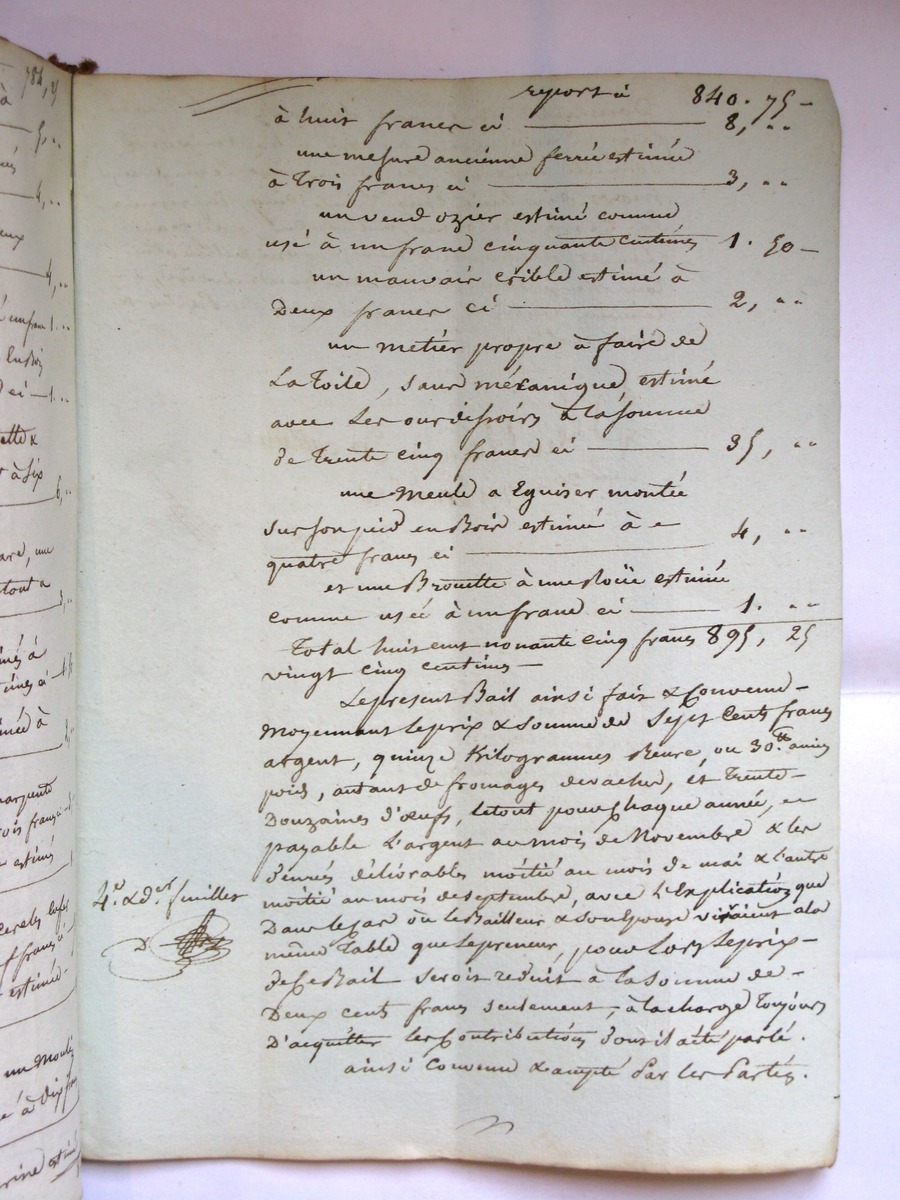 784, 25
report à 840. 75
à huit francs ci 8, ""
une mesure ancienne ferrée estimée
à Trois francs ci 3, ""
un vend ozier estimé comme
usé à un franc cinquante centimes 1. 50
un mauvais crible estimé à
Deux francs ci 2, ""
un metier propre à faire de
La Toile, sans mécanique, estimé
avec Les ourdissoirs à la somme
de Trente cinq francs ci 35, ""
une Meule a Eguiser montée
sur son pied en Bois estimée à
quatre francs ci 4, ""
et une Brouette à une Roüe estimée
comme usée à un franc ci 1. ""
Total huit cent nonante cinq francs 895, 25
vingt cinq centimes
Le present Bail ainsi fait & Convenu
Moyennant le prix & somme de Sept Cents francs
argent, quinze Kilogrammes Beure, ou 30.tt anciens
poids, autant de fromages de vache, et Trente
Douzaines d'œufs, le tout pour Chaque année,
payable L'argent au mois de Novembre & les
denrés déliorables moitié au mois de mai & L'autre
moitié au mois de septembre, avec L'Explication que
Dans le cas ou le Bailleur & son Epouse viveraient a la
même Table que le preneur, pour Lors le prix
de Ce Bail seroit reduit à la somme de
Deux cents francs seulement, à la charge Toujours
D'acquitter les Contributions dont il a été parlé.
ainsi Convenu & accepté Par les Parties.
4.e & der feuillet